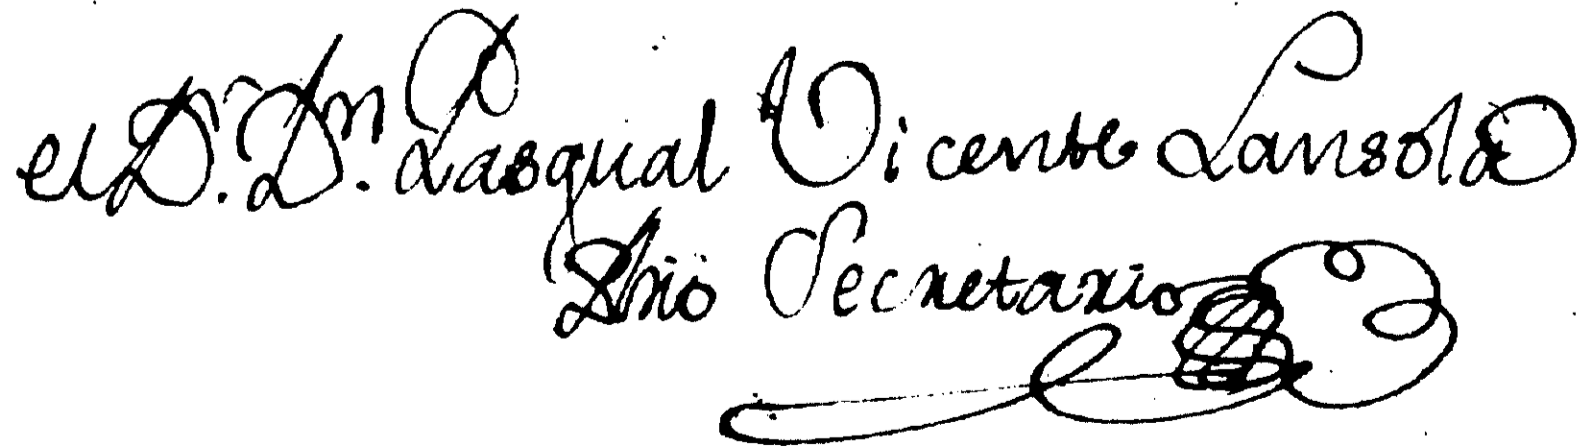 el D.r D.n Pasqual Vicente Lansola
Secretario